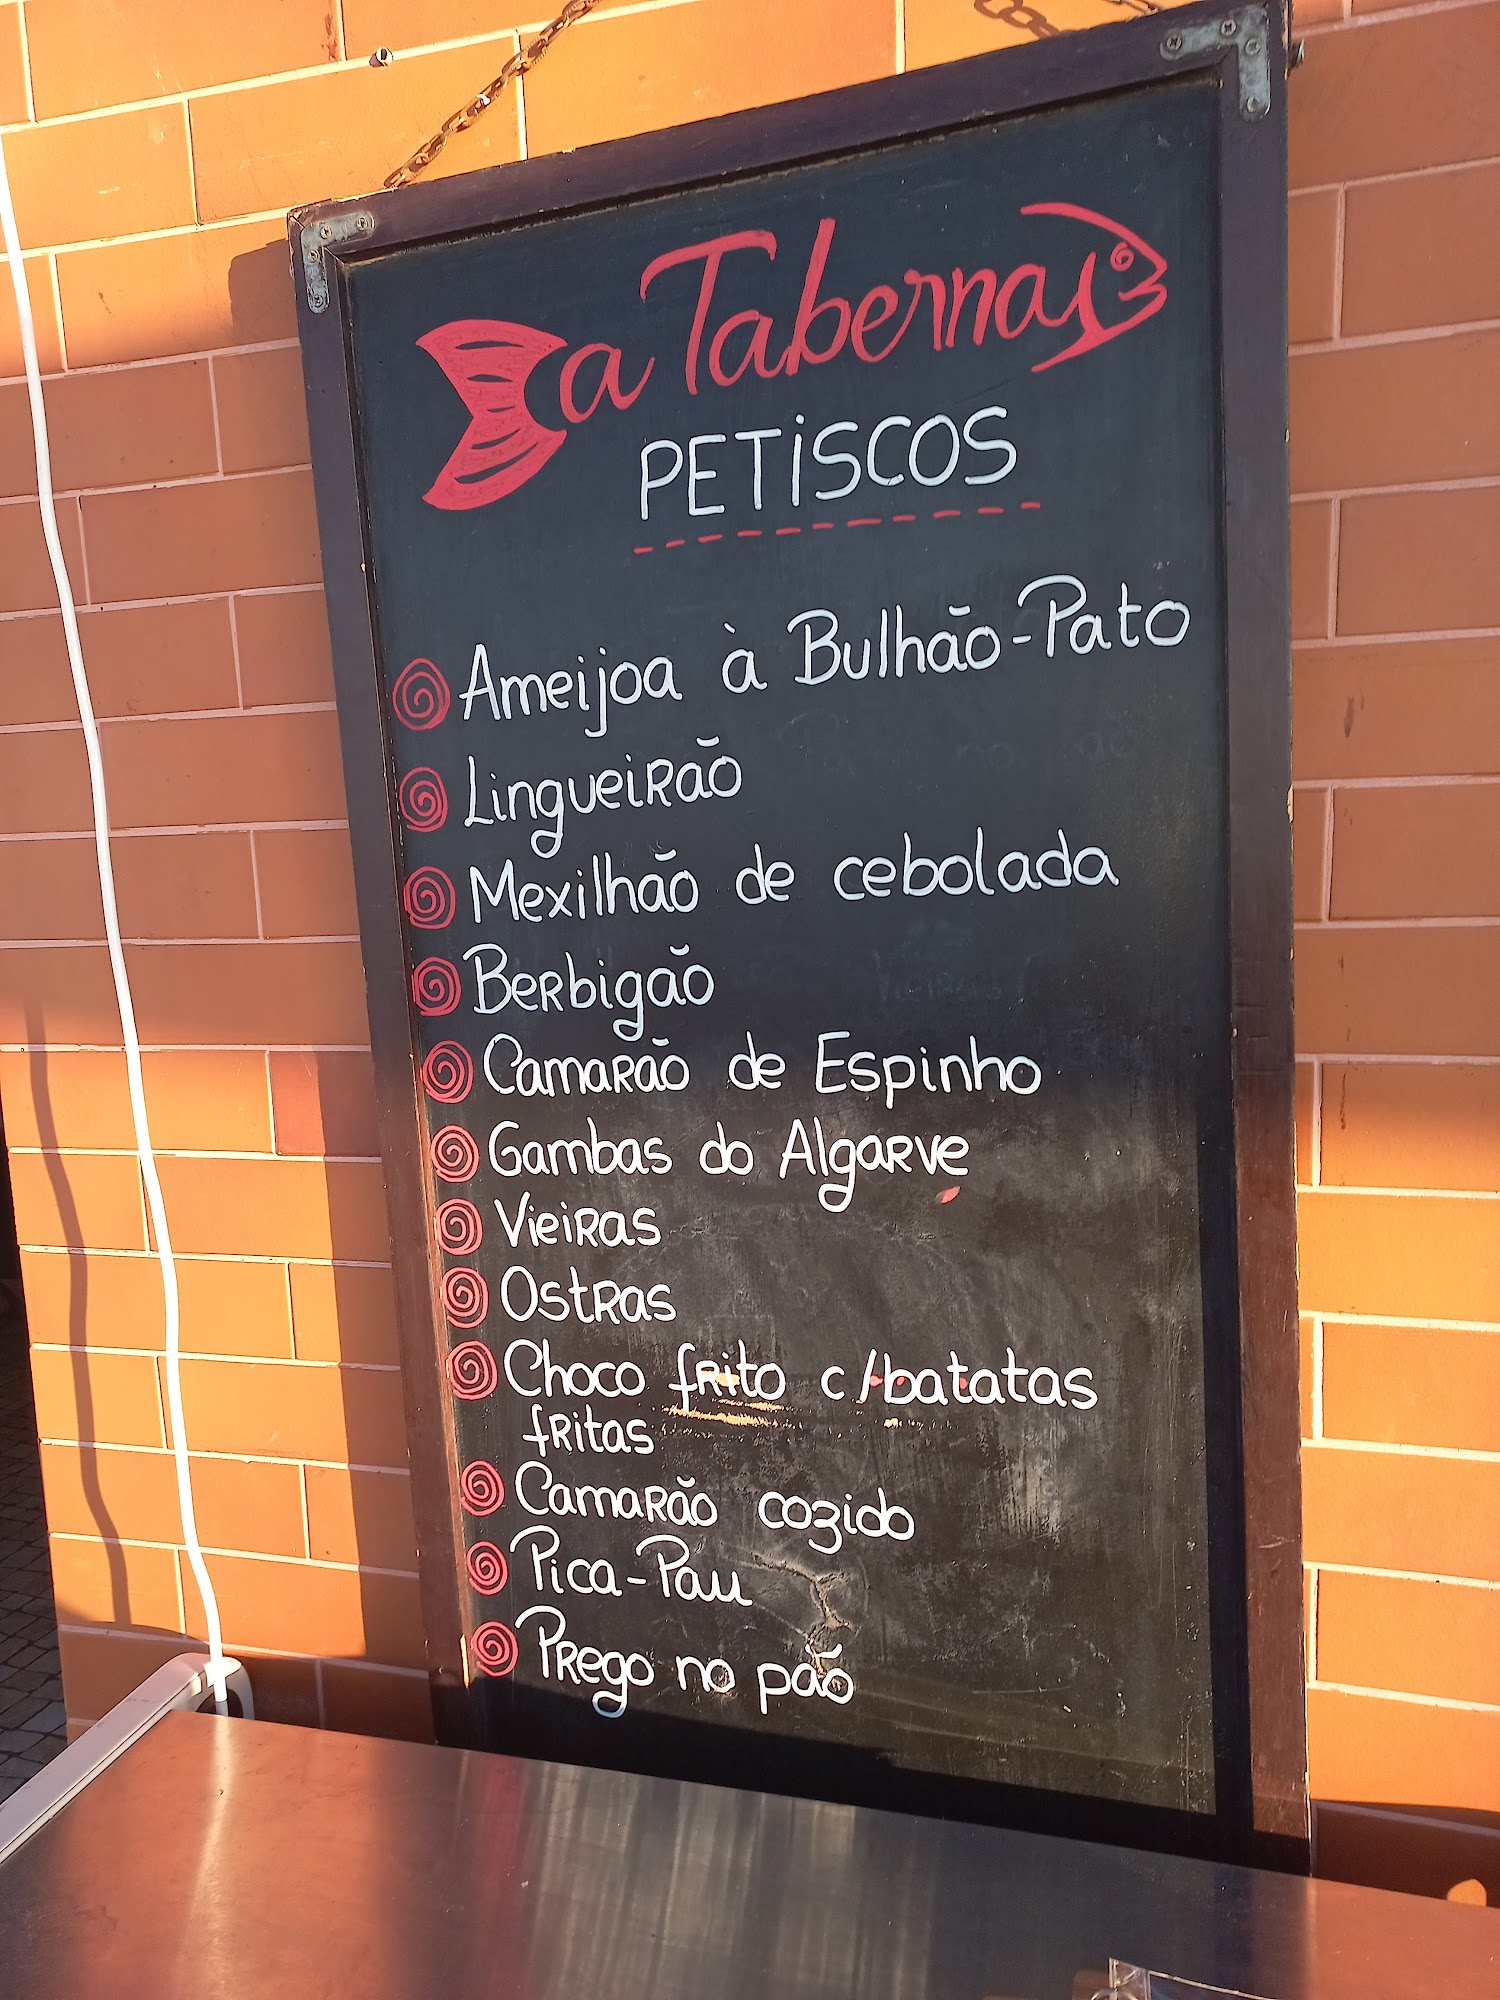 a Taberna
PETiSCOS
Ameijoa à Bulhão-Pato
Lingueirão
Mexilhão de cebolada
Berbigão
Camarão de Espinho
Gambas do Algarve
Vieiras
Ostras
Choco frito c/batatas
fritas
Camarão cozido
Pica-Pau
Prego no pão